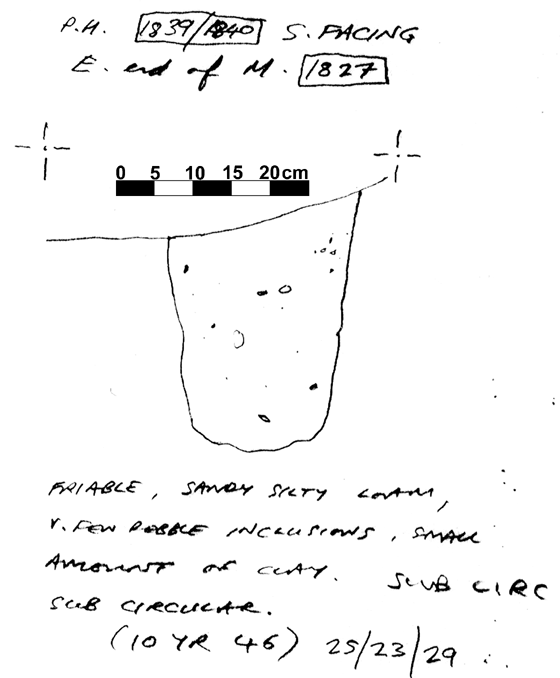 P.H. 1839/1840 S. FACING
E. end of M. 1827
0 5 10 15 20cm
FRIABLE, SANDY SILTY LOAM,
V. FEW PEBBLE INCLUSIONS, SMALL
AMOUNT OF CLAY. SUB CIRC
SUB CIRCULAR.
(10 YR 46) 25/23/29